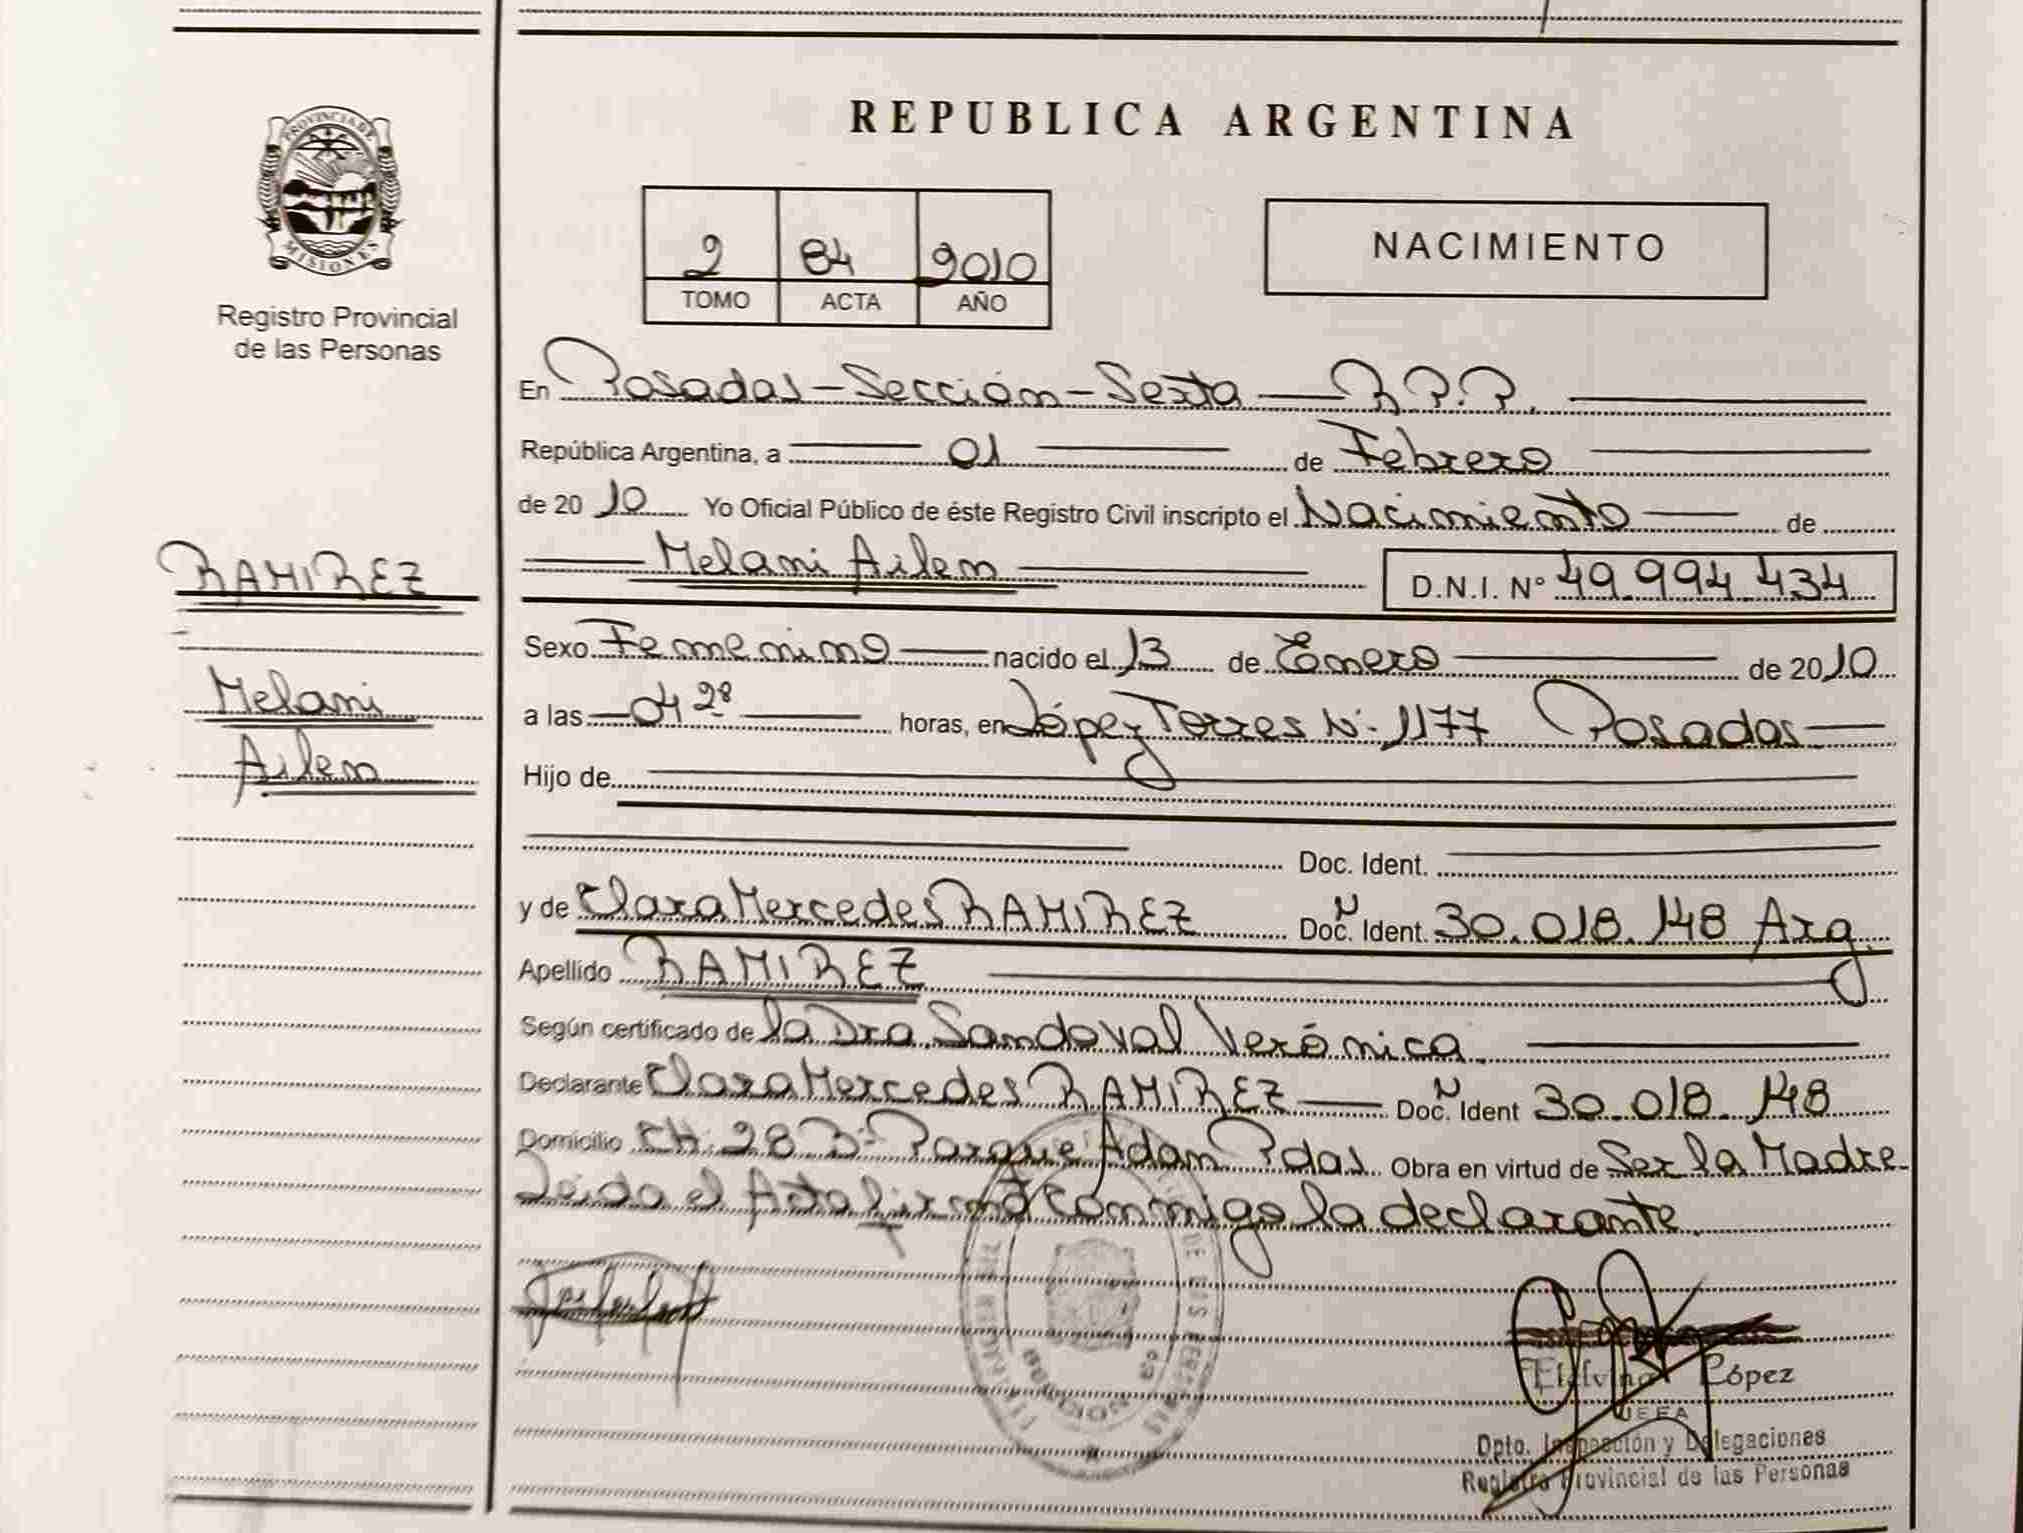 REPUBLICA ARGENTINA
PROVINCIA DE
MISIONES
Registro Provincial
de las Personas
2 84 2010
TOMO ACTA AÑO
NACIMIENTO
En Posadas - Sección - Sexta — R.P.P.
República Argentina, a 01 de Febrero
de 2010 Yo Oficial Público de éste Registro Civil inscripto el Nacimiento de
Melani Ailen D.N.I. Nº 49.994.434
RAMIREZ
Melani
Ailen
Sexo Femenino nacido el 13 de Enero de 2010
a las 04 28 horas, en López Torres N· 1177 Posadas
Hijo de
Doc. Ident.
y de Clara Mercedes RAMIREZ Doc. Ident. 30.018.148 Arg.
Apellido RAMIREZ
Según certificado de la Dra. Sandoval Verónica.
Declarante Clara Mercedes RAMIREZ Doc. Ident 30.018.148
Domicilio CH. 28 Bº Parque Adam Pdas. Obra en virtud de Ser la Madre
Leída el Acta firmó conmigo la declarante.
López
JEFA
Dpto. Inspección y Delegaciones
Registro Provincial de las Personas